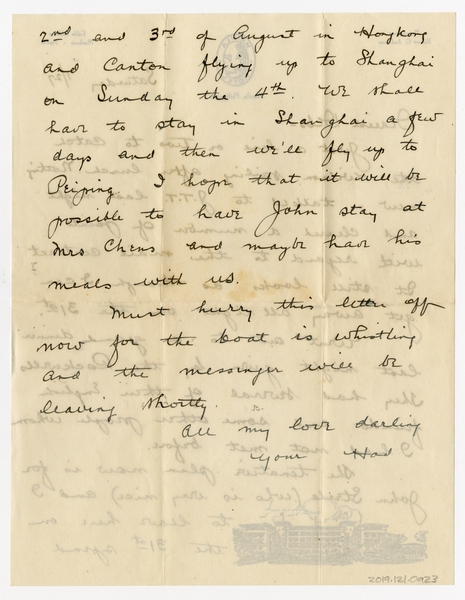 2nd and 3rd of August in Hongkong
and Canton flying up to Shanghai
on Sunday the 4th. We shall
have to stay in Shanghai a few
days and then we'll fly up to
Peiping. I hope that it will be
possible to have John stay at
Mrs Chens and maybe have his
meals with us.
Must hurry this letter off
now for the boat is whistling
and the messenger will be
leaving shortly.
All my love darling
Your Had
2019.121.0923